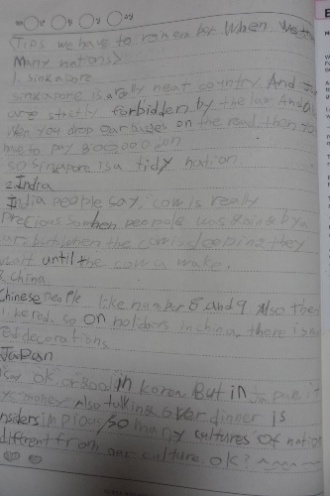 <Tips we have to remember When
Many nations>
1. singapore
singapore is a really neat country. And
are strictly forbidden by the law And
When you drop garbages on the road, then
have to pay 800000 won
so Singapore is a tidy nation.
2. India
India people say, cow is really
Precious. So when people was going by a
car but when the cow is sleeping they
wait until the cow wake.
China
Chinese people like number 8 and 9 Also they
like red, so on holiders in china, there is
red decorations.
Japan
say ok or good in korea. But in Japan it
money. Also talking over dinner is
considers impious. so many cultures of nation
different from our culture. ok? ~~~~